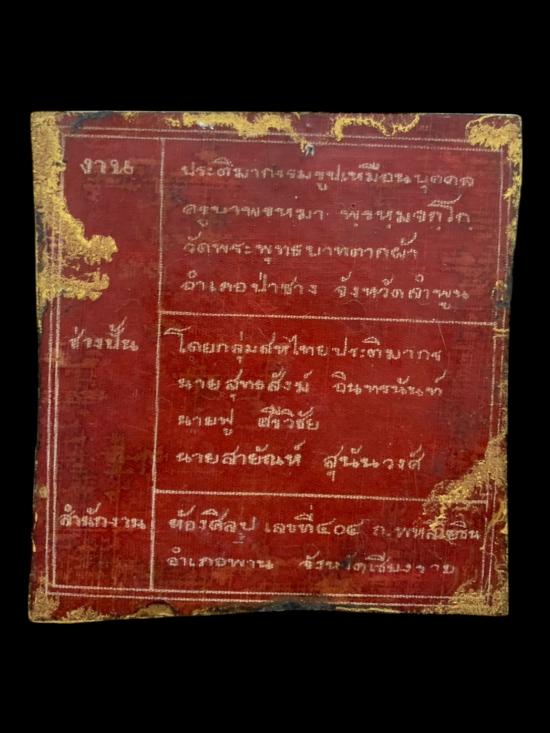 งาน ประติมากรรมรูปเหมือนบุคคล
ครูบาพรหมา พฺรหฺมจกฺโก
วัดพระพุทธบาทตากผ้า
อำเภอป่าซาง จังหวัดลำพูน
ช่างปั้น โดยกลุ่มสหไทยประติมากร
นายสุทธสังม์ อินทรนันท์
นายฟู ศรีวิชัย
นายสายัณห์ สุนันวงศ์
สำนักงาน ห้องศิลป เลขที่๔๐๔ ถ.พหลโยธิน
อำเภอพาน จังหวัดเชียงราย